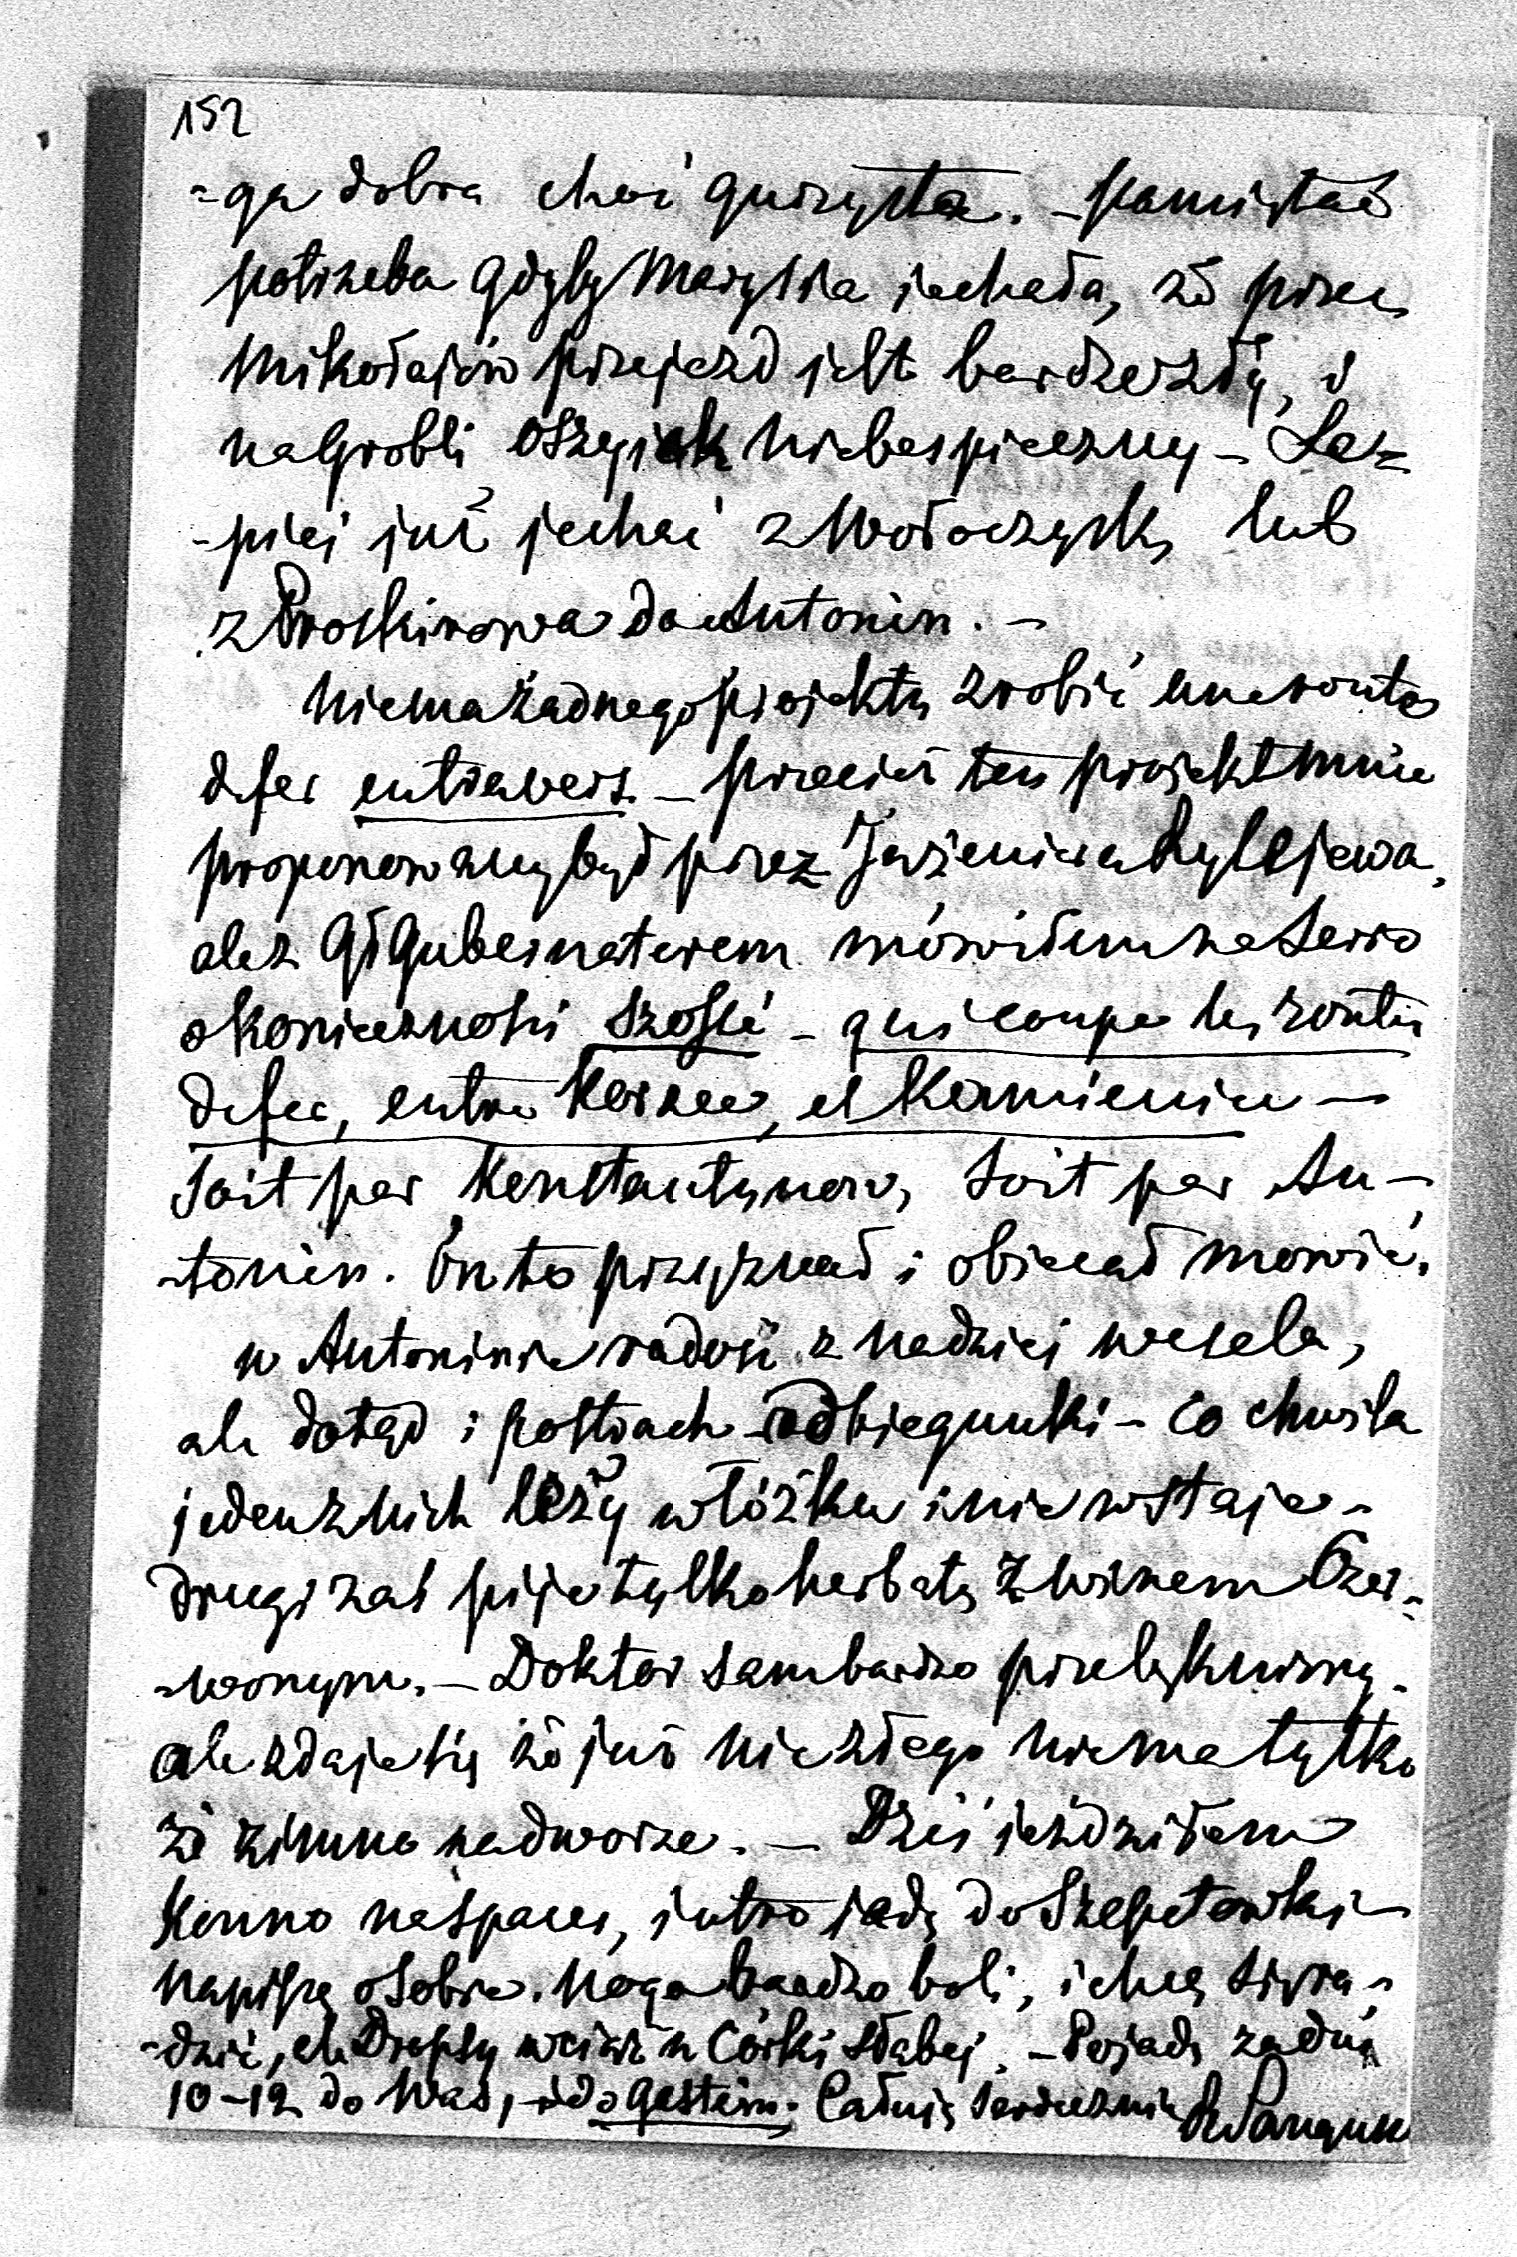 152
-ga dobra choć gurzysta. - Pamiętać
potrzeba gdyby Marysia jechała, że przez
Mikołajów przejazd jest bardzo zły, i
na Grobli niebespieczny - Le-
-piej już jechać z Wołoczysk, lub
z Proskirowa do Antonin. -
Niema żadnego projektu zrobić une route
de fer en travers - przecież ten projekt mnie
proponowany był przez Rylejewa,
ale z Gł Gubernatorem mówiłem na serio
o konieczności szossé - qui coupe les routes
de fer, entre Korzec, et Kamieniec -
soit par Konstantynow, soit par An-
-tonin. On to przyznał i obiecał mowić.
w Antoninie radość z nadziei wesela,
ale dotąd i postrach biegunki - co chwila
jeden z nich leży w łóżku i nie wstaje -
drugi zaś pije tylko herbatę z winem Czer-
-wonym. - Doktor sam bardzo przelękniony -
ale zdaje się że już nic złego niema tylko
że zimno na dworze. - Dziś jeździłem
Konno na spacer, jutro jadę do Szepetowki -
napiszę o sobie. Noga bardzo boli, i chcę się ra-
-dzić, ale Drepsy wciąż u Córki słabej. - Pojadę za dni
10-12 do Was, i do Gastein. Całuję serdecznie RSangusz